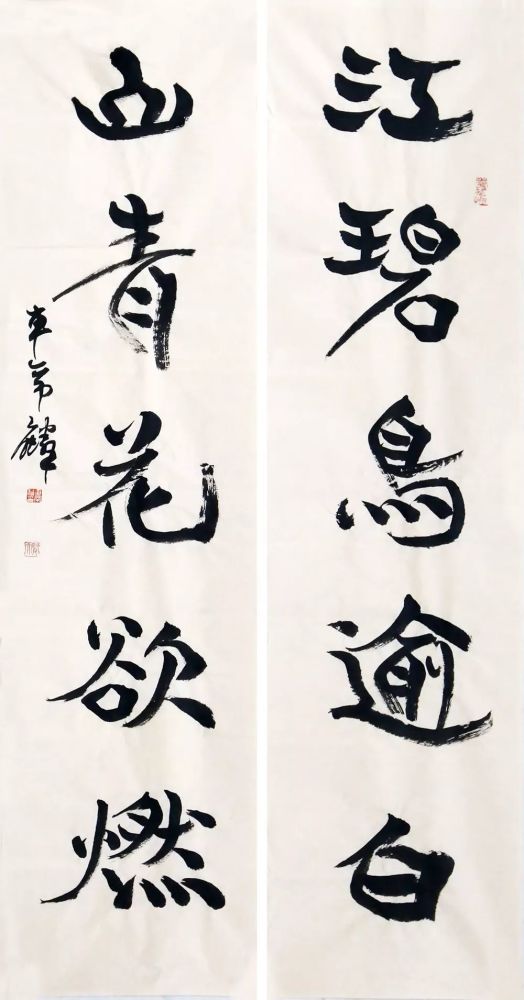 江碧鳥逾白
山青花欲燃